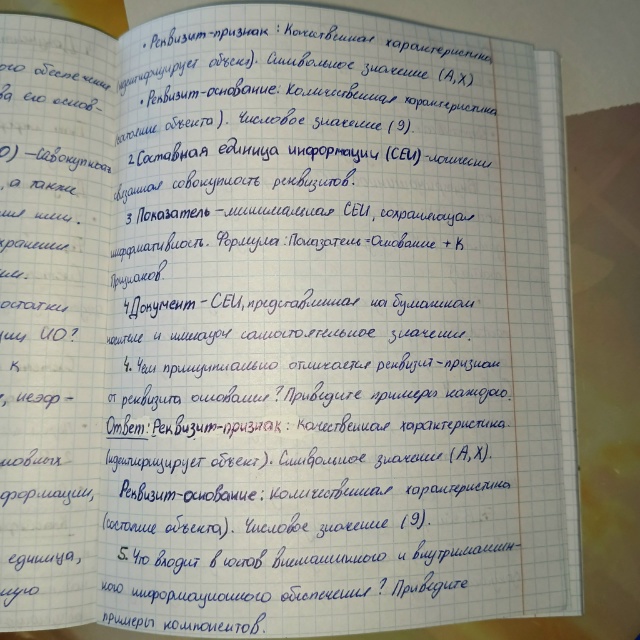 ого обеспечения
ва его основ-
О) – совокупность
, а также
ния ими.
хранении
ии.
остатки
ции ИО?
к
, неэф-
новных
формации,
единица,
ную
• Реквизит-признак: Качественная характеристика
(идентифицирует объект). Символьное значение (А,Х)
• Реквизит-основание: Количественная характеристика
(состояние объекта). Числовое значение (9).
2 Составная единица информации (СЕИ) – логически
связанная совокупность реквизитов.
3 Показатель – минимальная СЕИ, сохраняющая
информативность. Формула: Показатель = Основание + К
Признаков.
4 Документ – СЕИ, представленная на бумажном
носителе и имеющая самостоятельное значение.
4. Чем принципиально отличается реквизит-признак
от реквизита основания? Приведите примеры каждого.
Ответ: Реквизит-признак: Качественная характеристика.
(идентифицирует объект). Символьное значение (А,Х).
Реквизит-основание: Количественная характеристика
(состояние объекта). Числовое значение (9).
5. Что входит в состав внемашинного и внутримашин-
ного информационного обеспечения? Приведите
примеры компонентов.